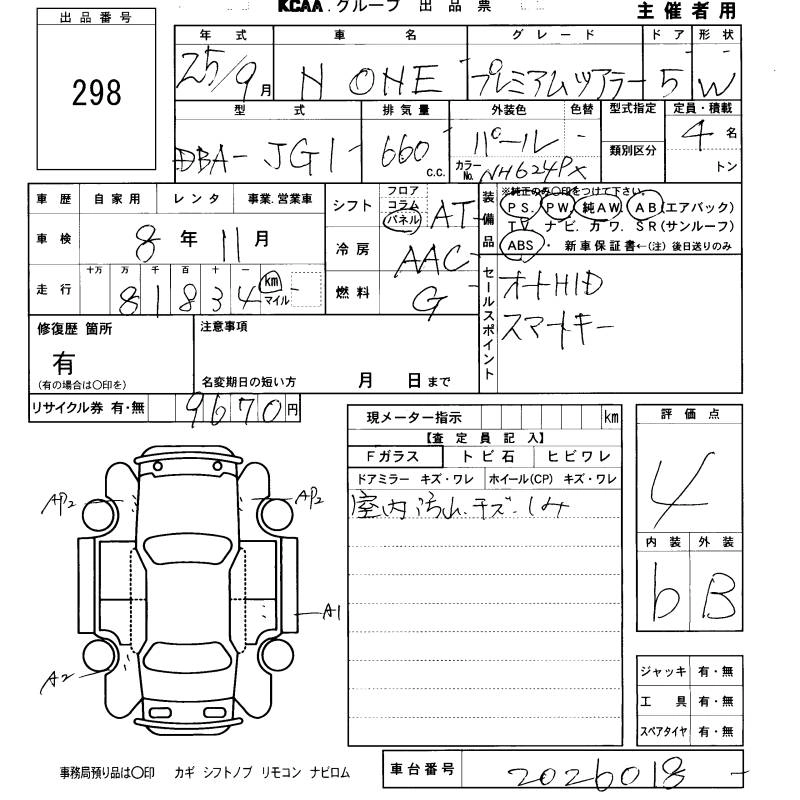 KCAA.グループ 出品票
主催者用
出品番号
298
年式 車名 グレード ドア 形状
25/9月 N ONE プレミアムツアラー 5 W
型式 排気量 外装色 色替 型式指定 定員・積載
DBA-JG1 660 c.c. パール 類別区分 4名
カラーNo. NH624PX トン
車歴 自家用 レンタ 事業.営業車
車検 8年11月
走行 十万 万 千 百 十 一 km マイル
8 1 8 3 4
シフト フロア コラム パネル AT
冷房 AAC
燃料 G
装備品 ※純正のみ○印をつけて下さい。
PS. PW. 純AW. AB(エアバック)
TV. ナビ. カワ. SR(サンルーフ)
ABS・新車保証書←(注)後日送りのみ
セールスポイント
オートHID
スマートキー
修復歴 箇所
有
(有の場合は○印を)
注意事項
名変期日の短い方 月 日まで
リサイクル券 有・無 9670円
現メーター指示 km
【査定員記入】
Fガラス トビ石 ヒビワレ
ドアミラー キズ・ワレ ホイール(CP) キズ・ワレ
室内汚れ.キズ.シミ
評価点
4
内装 外装
b B
AP2 AP2
A1
A2
ジャッキ 有・無
工具 有・無
スペアタイヤ 有・無
事務局預り品は○印 カギ シフトノブ リモコン ナビロム
車台番号 2026018